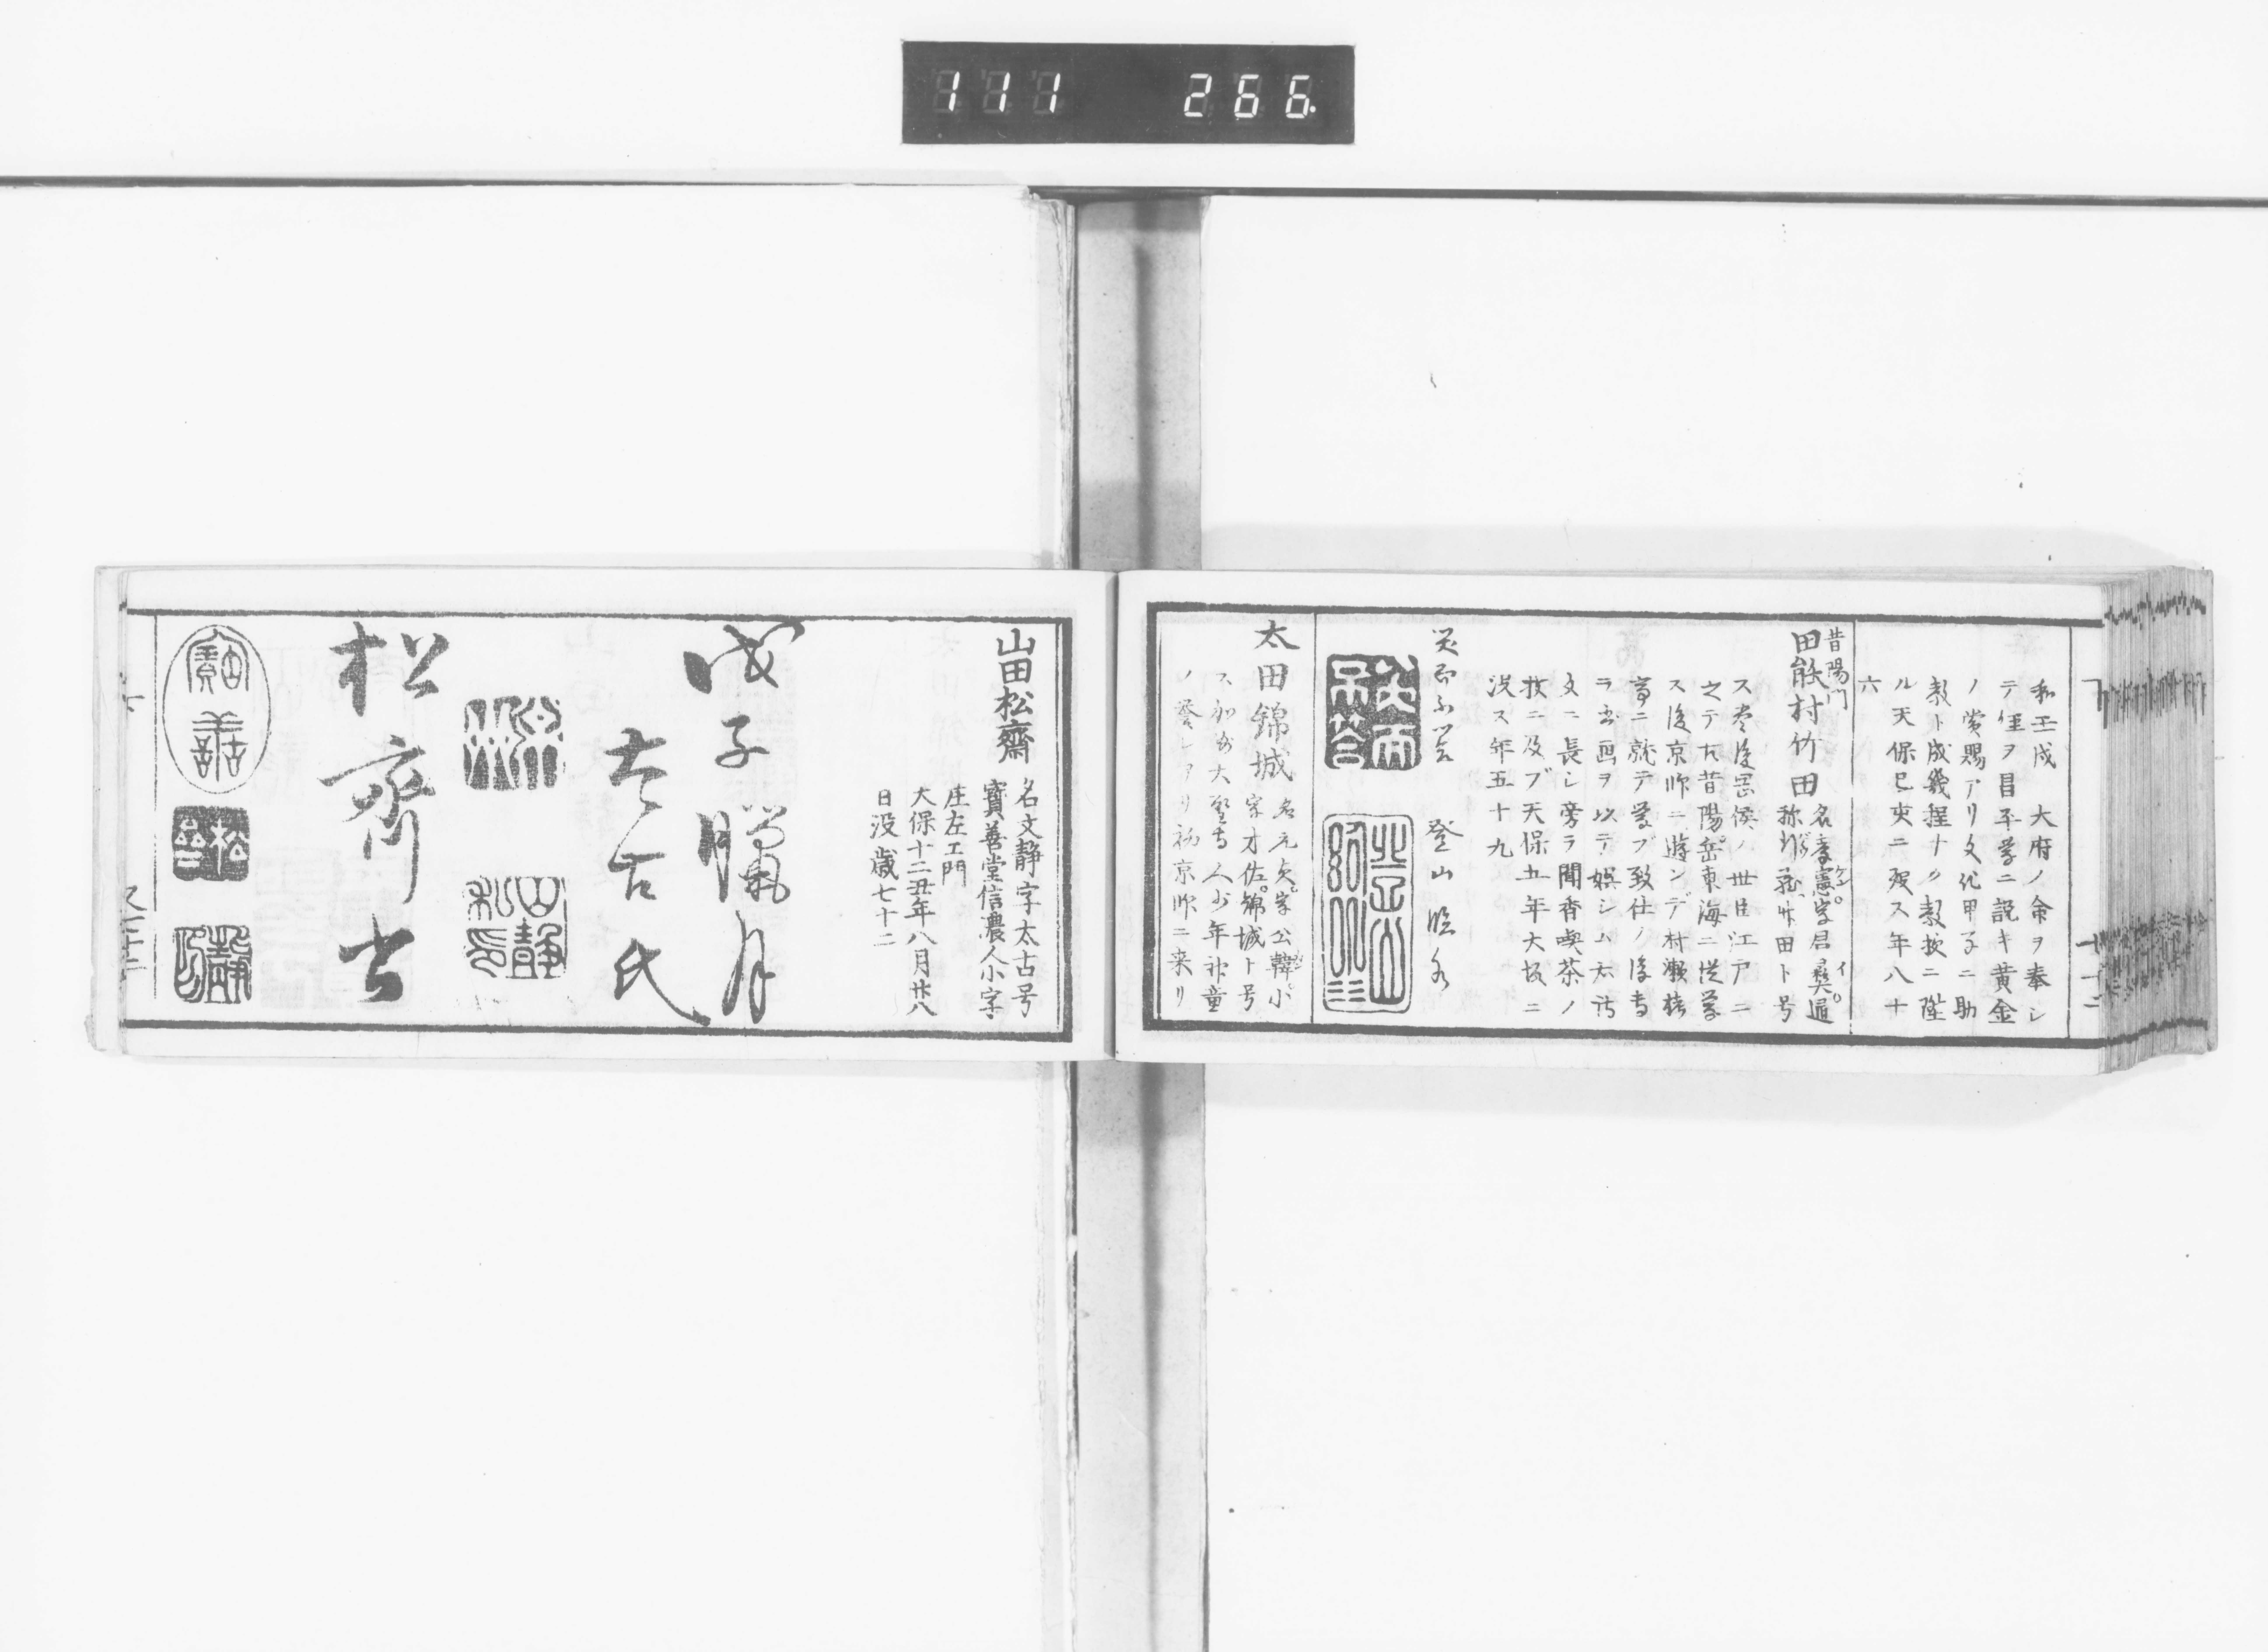 111 266.
和壬戌 大府ノ命ヲ奉シ
テ徑ヲ昌平學ニ説キ黄金
ノ賞賜アリ文化甲子ニ助
教ト成幾程ナク教授ニ陞
ル天保巳亥ニ殁ス年八十
六
昔陽門
田能村竹田
名孝憲字君彝通
称 竹田ト号
ス豊後岡侯ノ世臣江戸ニ
之テ古昔陽岳東海ニ從學
ス後京師ニ遊ンデ村瀬栲
亭ニ就テ學ブ致仕ノ後専
ラ書画ヲ以テ娯シム亦詩
文ニ長シ旁ラ聞香喫茶ノ
技ニ及ブ天保五年大坂ニ
没ス年五十九
笑而不答 登山臨水
太田錦城
名元貞字公幹小
字才佐錦城ト号
ス加州大聖寺人少年神童
ノ譽レアリ初京師ニ来リ
山田松齋
名文静字太古号
寶善堂信濃人小字
庄左エ門
大保十二丑年八月廿八
日没歳七十二
戊子臘月
太古氏
山靜私印
松齋書
寶善